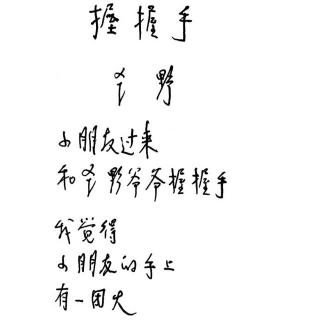 握握手
芒野
小朋友过来
和芒野爷爷握握手
我觉得
小朋友的手上
有一团火